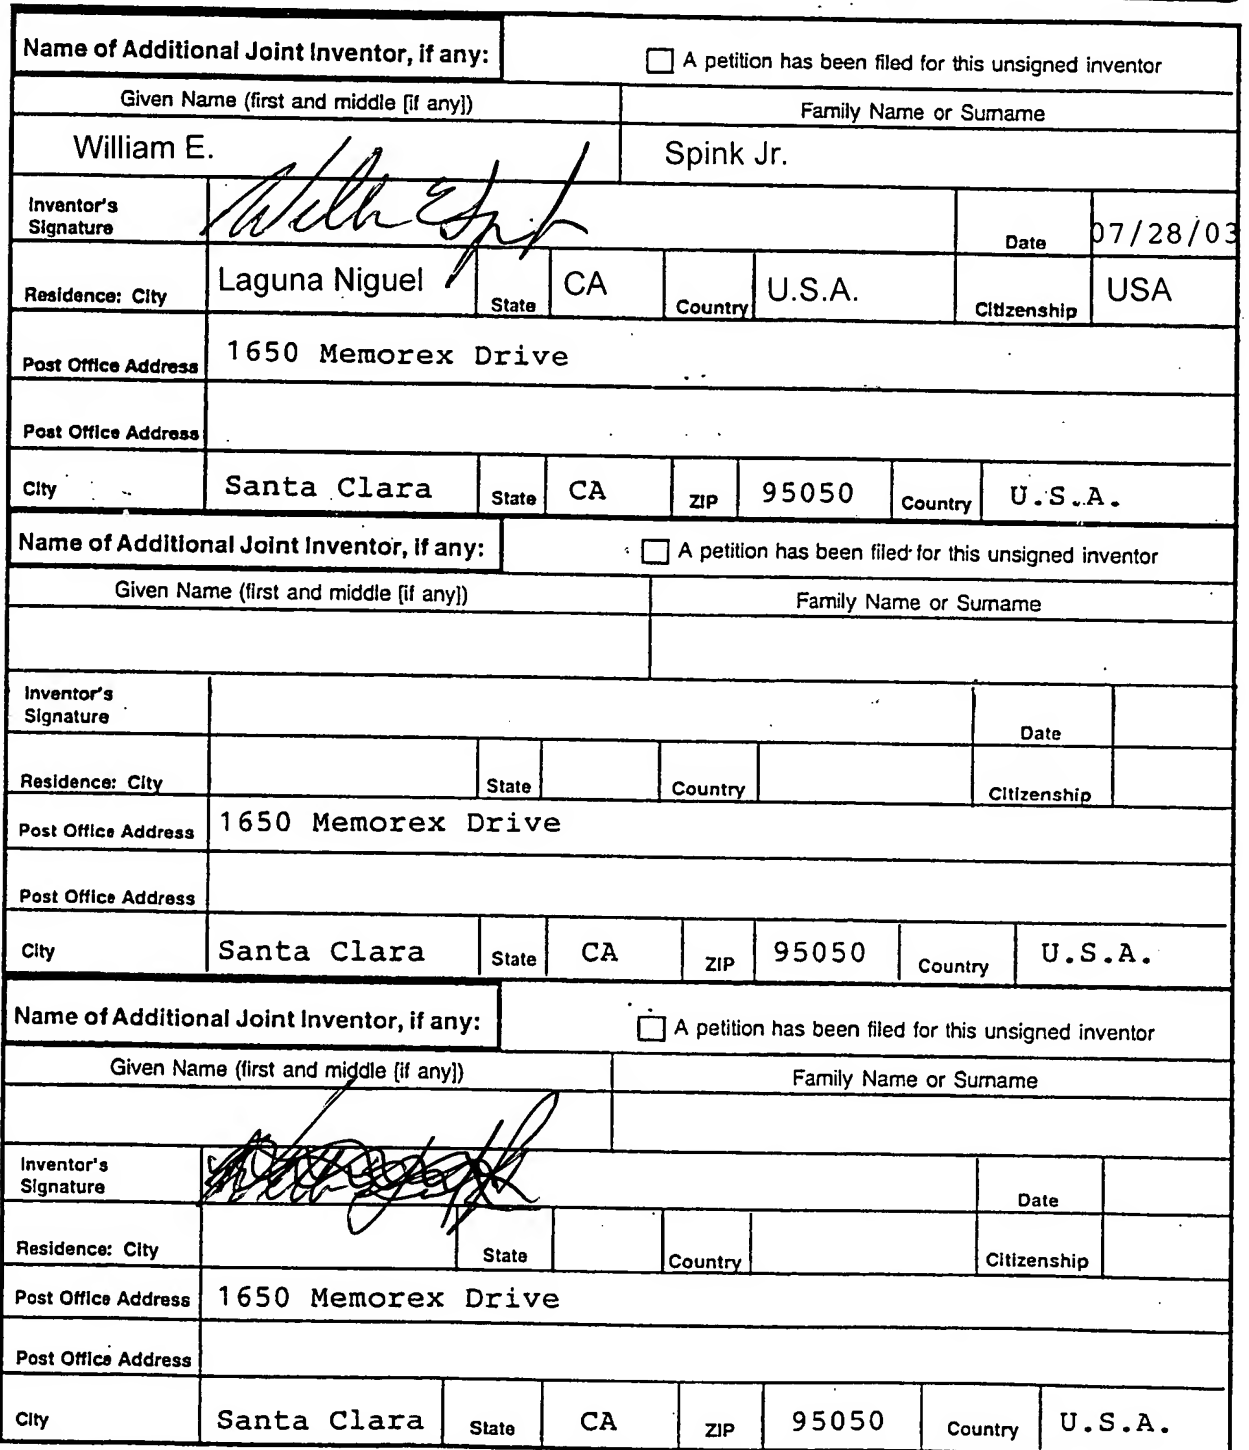 Name of Additional Joint Inventor, if any: A petition has been filed for this unsigned inventor
Given Name (first and middle [if any]) Family Name or Surname
William E. Spink Jr.
Inventor's Signature Date 07/28/03
Residence: City Laguna Niguel State CA Country U.S.A. Citizenship USA
Post Office Address 1650 Memorex Drive
Post Office Address
City Santa Clara State CA ZIP 95050 Country U.S.A.
Name of Additional Joint Inventor, if any: A petition has been filed for this unsigned inventor
Given Name (first and middle [if any]) Family Name or Surname
Inventor's Signature Date
Residence: City State Country Citizenship
Post Office Address 1650 Memorex Drive
Post Office Address
City Santa Clara State CA ZIP 95050 Country U.S.A.
Name of Additional Joint Inventor, if any: A petition has been filed for this unsigned inventor
Given Name (first and middle [if any]) Family Name or Surname
Inventor's Signature Date
Residence: City State Country Citizenship
Post Office Address 1650 Memorex Drive
Post Office Address
City Santa Clara State CA ZIP 95050 Country U.S.A.